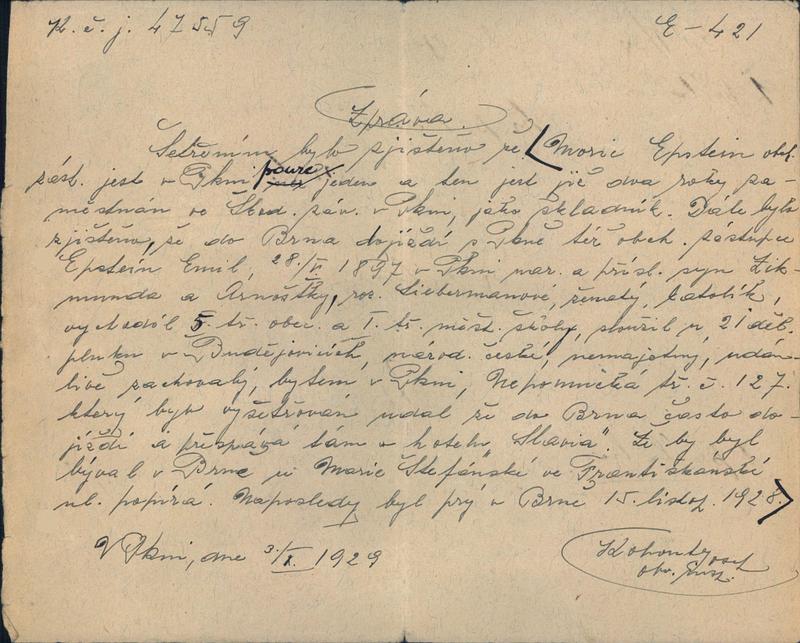 K. č. j. 47559
E - 421
Zpráva.
Šetřením bylo zjištěno že Moric Epstein obch.
zást. jest v Plzni pouze jeden a ten jest již dva roky za-
městnán ve Škod. záv. v Plzni, jako skladník. Dále bylo
zjištěno, že do Brna dojíždí z Plzně též obch. zástupce
Epstein Emil, 28./ 1897 v Plzni nar. a přísl. syn Zik-
munda a Arnoštky, roz. Liebermanové, ženatý, katolík,
vychodil 5. tř. obec. a I. tř. měšť. školy, sloužil u 21 děl.
pluku v Budějovicích, národ. české, nemajetný, udán-
livě zachovalý, bytem v Plzni, Nepomucká tř. č. 127.
který byv vyšetřován udal že do Brna často do-
jíždí a přespává tám v hotelu Slavia". Že by byl
býval v Brně u Marie Štefánské ve Františkánské
ul. popírá. Naposledy byl prý v Brně 15. listop. 1928.
V Plzni, dne 3./X. 1929